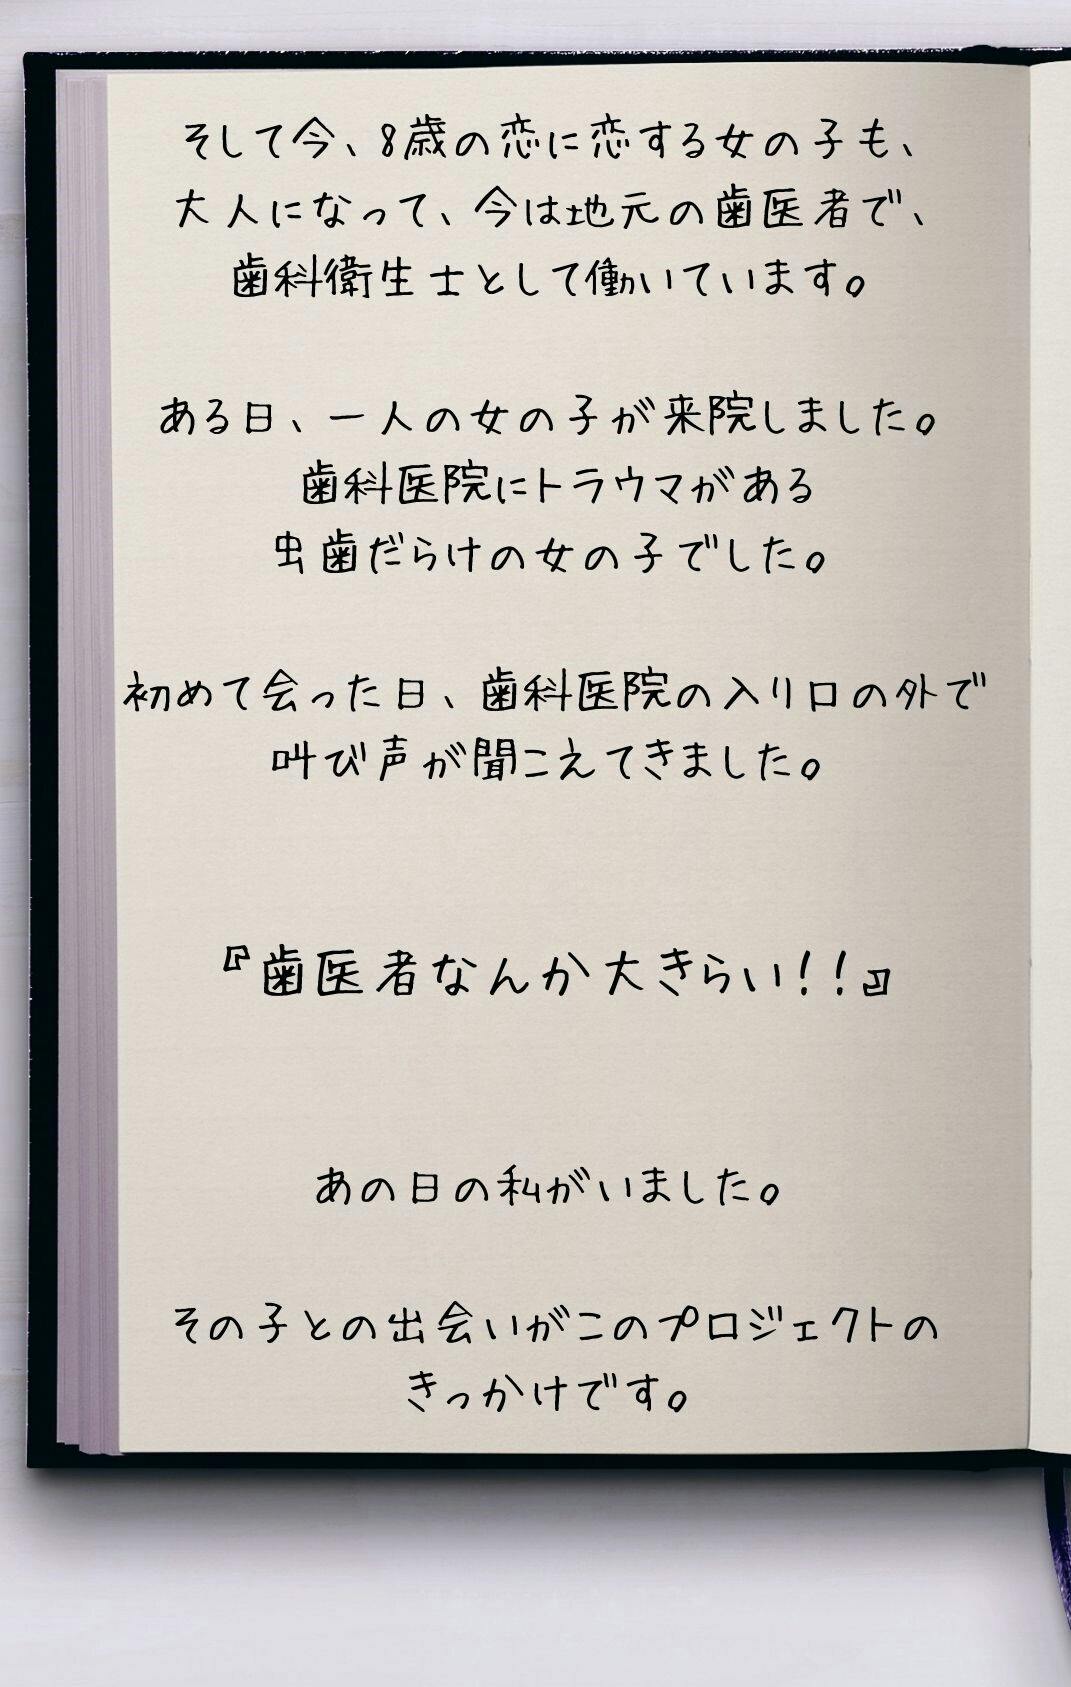 そして今、8歳の恋に恋する女の子も、
大人になって、今は地元の歯医者で、
歯科衛生士として働いています。
ある日、一人の女の子が来院しました。
歯科医院にトラウマがある
虫歯だらけの女の子でした。
初めて会った日、歯科医院の入り口の外で
叫び声が聞こえてきました。
『歯医者なんか大きらい!!』
あの日の私がいました。
その子との出会いがこのプロジェクトの
きっかけです。